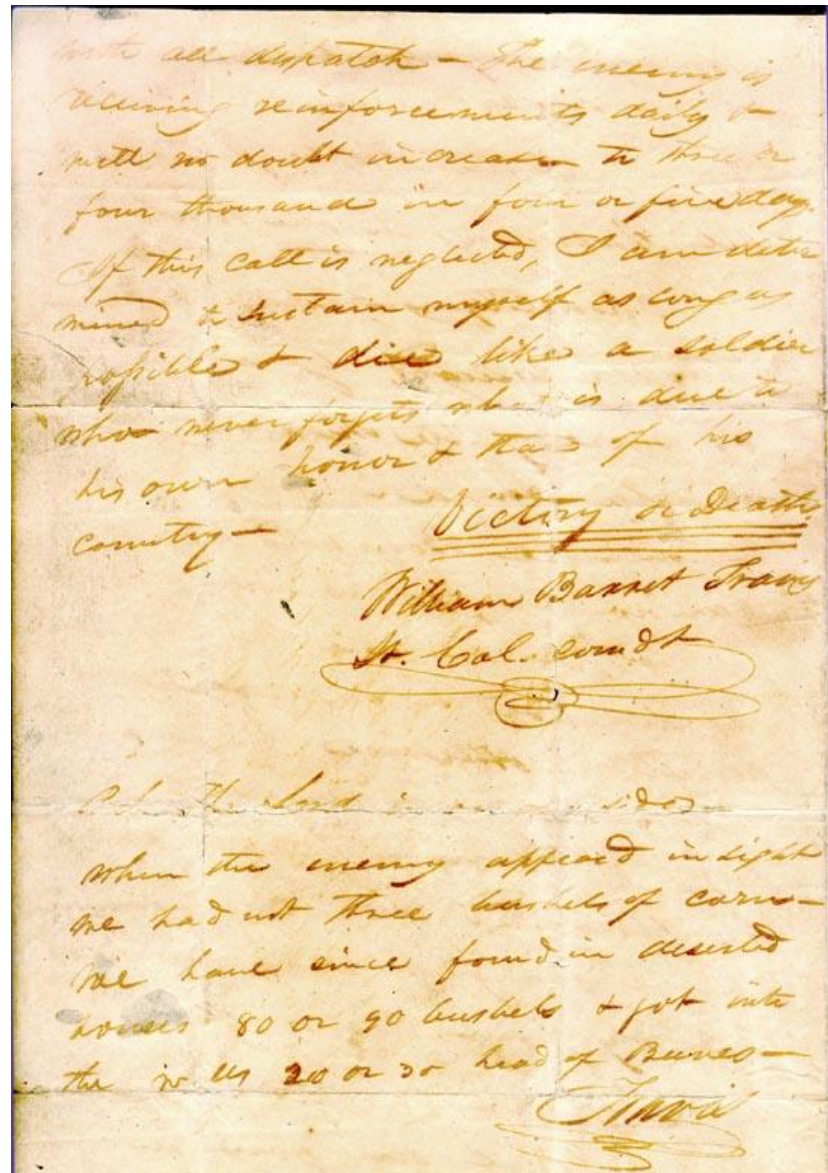 with all dispatch – The enemy is
receiving reinforcements daily &
will no doubt increase to three or
four thousand in four or five days.
If this call is neglected, I am deter
mined to sustain myself as long as
possible & die like a soldier
who never forgets what is due to
his own honor & that of his
country –
Victory or Death
William Barret Travis
Lt. Col. comdt
P.S. The Lord is on our side –
when the enemy appeared in sight
we had not three bushels of corn –
we have since found in deserted
houses 80 or 90 bushels & got into
the walls 20 or 30 head of Beeves –
Travis